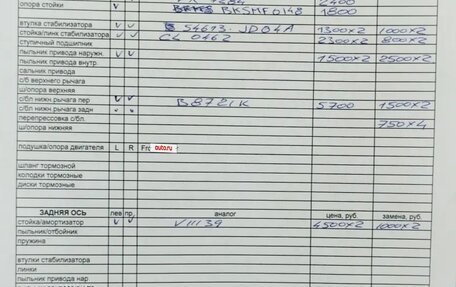 опора стойки V BKSMF0148 1800
втулка стабилизатора
стойка/линк стабилизатора V V 54613-JD04A 1300x2 1000x2
ступичный подшипник CL 0462 2300x2 800x2
пыльник привода наружн. V V
пыльник привода внутр. 1500x2 2500x2
сальник привода
с/б верхнего рычага
ш/опора верхняя
с/бл нижн.рычага пер V V B8721K 5700 1500x2
с/бл нижн.рычага задн V V
перепрессовка с/бл.
ш/опора нижняя 750x4
подушка/опора двигателя L R Fr auto.ru
шланг тормозной
колодки тормозные
диски тормозные
ЗАДНЯЯ ОСЬ лев пр. аналог цена, руб. замена, руб.
стойка/амортизатор V V V11139 4500x2 1000x2
пыльник/отбойник
пружина
втулки стабилизатора
линки
пыльник привода нар